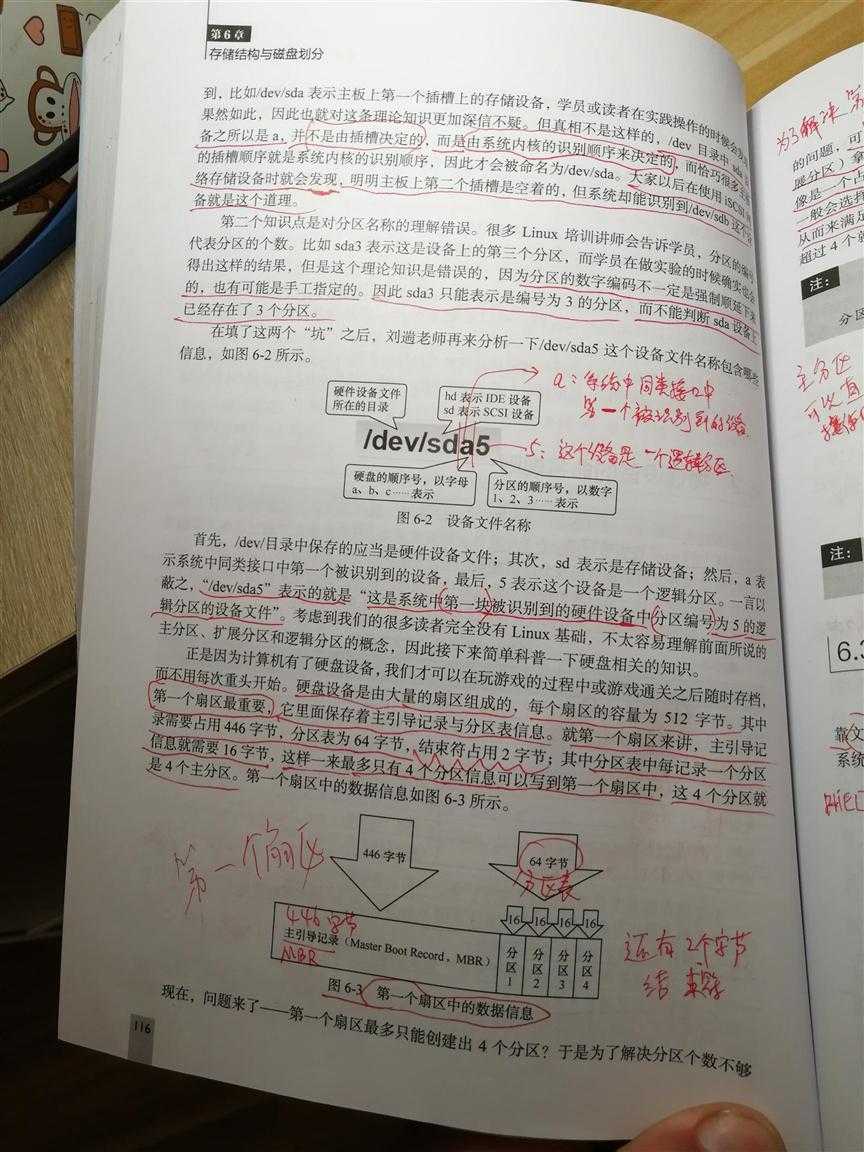 第6章
存储结构与磁盘划分
到，比如/dev/sda 表示主板上第一个插槽上的存储设备，学员或读者在实践操作的时候会发现
果然如此，因此也就对这条理论知识更加深信不疑。但真相不是这样的，/dev 目录中 sda 设
备之所以是 a，并不是由插槽决定的，而是由系统内核的识别顺序来决定的，而恰巧很多主板
的插槽顺序就是系统内核的识别顺序，因此才会被命名为/dev/sda。大家以后在使用 iSCSI 网
络存储设备时就会发现，明明主板上第二个插槽是空着的，但系统却能识别到/dev/sdb 这个设
备就是这个道理。
第二个知识点是对分区名称的理解错误。很多 Linux 培训讲师会告诉学员，分区的编号
代表分区的个数。比如 sda3 表示这是设备上的第三个分区，而学员在做实验的时候确实也会
得出这样的结果，但是这个理论知识是错误的，因为分区的数字编码不一定是强制顺延下来
的，也有可能是手工指定的。因此 sda3 只能表示是编号为 3 的分区，而不能判断 sda 设备上
已经存在了 3 个分区。
在填了这两个“坑”之后，刘遄老师再来分析一下/dev/sda5 这个设备文件名称包含哪些
信息，如图 6-2 所示。
a：系统中同类接口中
第一个被识别到的设备
硬件设备文件
所在的目录
hd 表示 IDE 设备
sd 表示 SCSI 设备
/dev/sda5
5：这个设备是一个逻辑分区
硬盘的顺序号，以字母
a、b、c……表示
分区的顺序号，以数字
1、2、3……表示
图 6-2 设备文件名称
首先，/dev/目录中保存的应当是硬件设备文件；其次，sd 表示是存储设备；然后，a 表
示系统中同类接口中第一个被识别到的设备，最后，5 表示这个设备是一个逻辑分区。一言以
蔽之，“/dev/sda5”表示的就是“这是系统中第一块被识别到的硬件设备中分区编号为 5 的逻
辑分区的设备文件”。考虑到我们的很多读者完全没有 Linux 基础，不太容易理解前面所说的
主分区、扩展分区和逻辑分区的概念，因此接下来简单科普一下硬盘相关的知识。
正是因为计算机有了硬盘设备，我们才可以在玩游戏的过程中或游戏通关之后随时存档，
而不用每次重头开始。硬盘设备是由大量的扇区组成的，每个扇区的容量为 512 字节。其中
第一个扇区最重要，它里面保存着主引导记录与分区表信息。就第一个扇区来讲，主引导记
录需要占用 446 字节，分区表为 64 字节，结束符占用 2 字节；其中分区表中每记录一个分区
信息就需要 16 字节，这样一来最多只有 4 个分区信息可以写到第一个扇区中，这 4 个分区就
是 4 个主分区。第一个扇区中的数据信息如图 6-3 所示。
第一个扇区
446 字节
64 字节
分区表
16 16 16 16
446 字节
主引导记录（Master Boot Record，MBR）
MBR
分区1
分区2
分区3
分区4
还有2个字节
结束符
图 6-3 第一个扇区中的数据信息
现在，问题来了——第一个扇区最多只能创建出 4 个分区？于是为了解决分区个数不够
116
为了解决
的问题，可
展分区）拿
像是一个占
一般会选择
从而来满足
超过 4 个
注：
分区
主分区
可以直
注：
6.3
靠文
系统